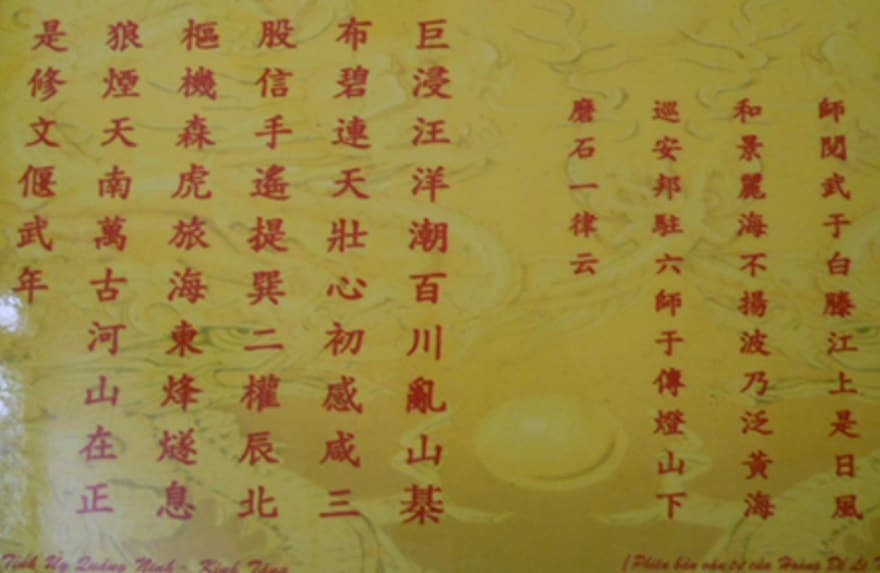 師閱武于白滕江上是日風
和景麗海不揚波乃泛黃海
巡安邦駐六師于傳燈山下
磨石一律云
巨浸汪洋潮百川亂山棊
布碧連天壯心初感咸三
股信手遙提巽二權辰北
樞機森虎旅海東烽燧息
狼煙天南萬古河山在正
是修文偃武年
Tỉnh Ủy Quảng Ninh - Kính Tặng
(Phiên bản văn tự của Hoàng Đế Lê T